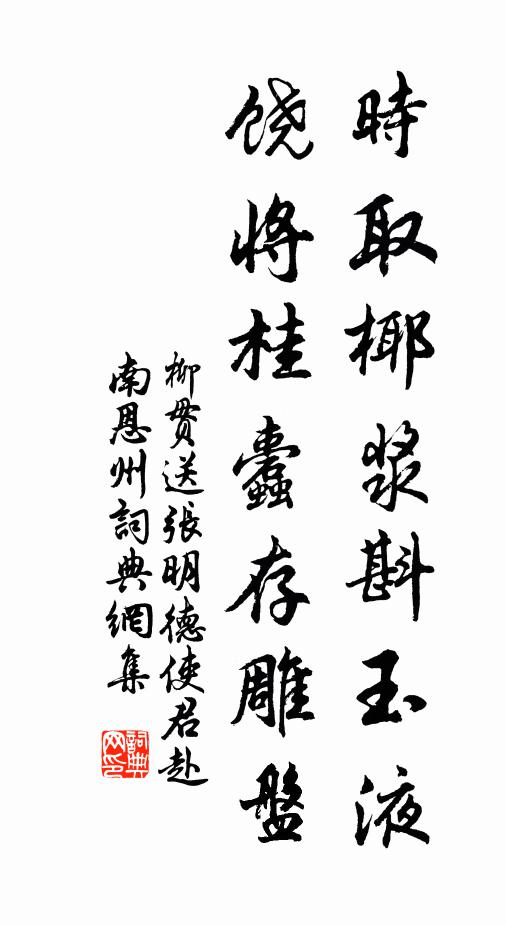 時取椰漿斟玉液
饒將桂蠹存雕盤
柳貫送張明德使君赴
南恩州詞典網集